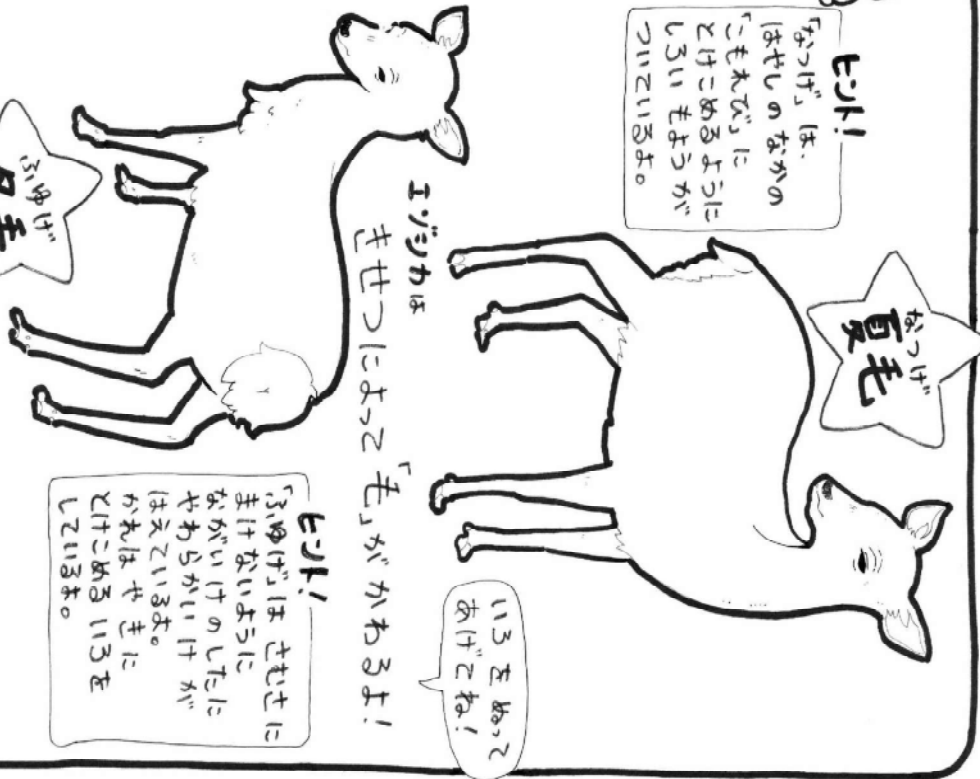 なつげ
夏毛
ヒント!
「なつげ」は、
はやしのなかの
「こもれび」に
とけこめるように
しろいもようが
ついているよ。
いろをぬって
あげてね!
エゾシカは
きせつによって「毛」がかわるよ!
ふゆげ
ヒント!
「ふゆげ」は さむさに
まけないように
ながいけのしたに
やわらかいけが
はえているよ。
かれは やきに
とけこめるいろを
しているよ。